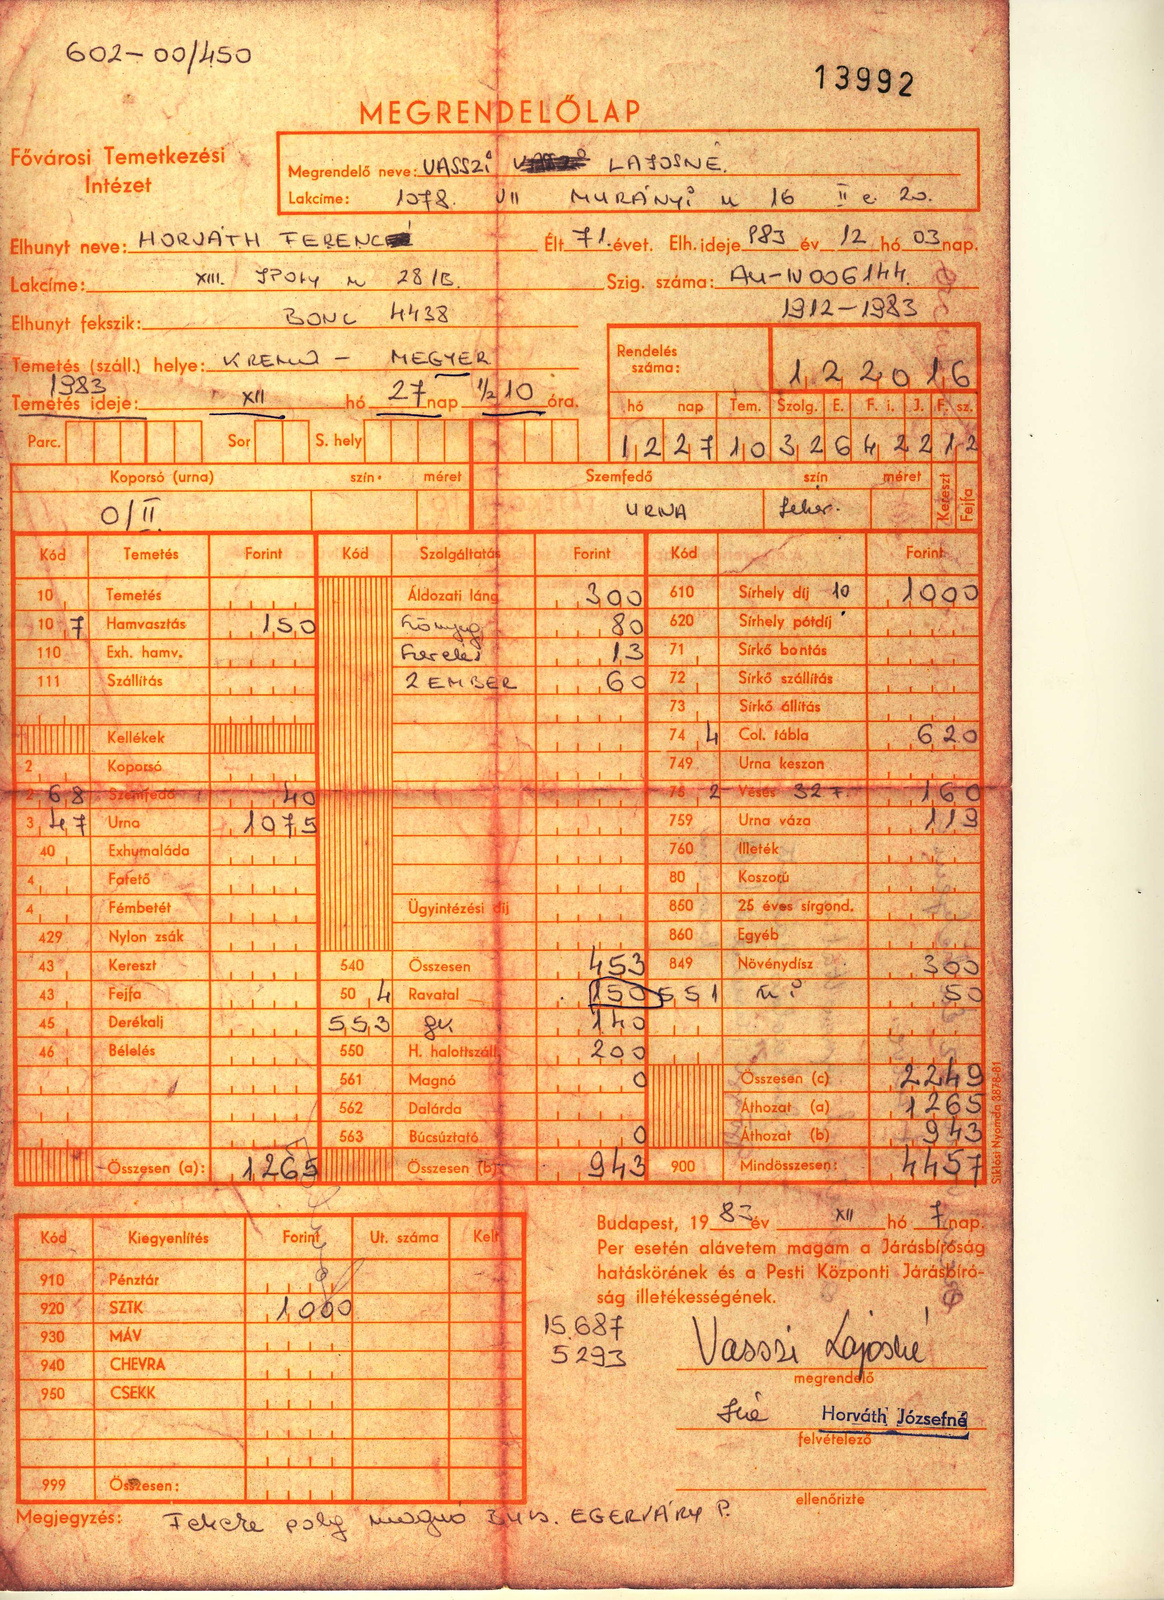 602-00/450
13992
MEGRENDELŐLAP
Fővárosi Temetkezési
Intézet
Megrendelő neve: VASSZI LAJOSNÉ.
Lakcíme: 1078. VII MURÁNYI u 16 II e 20.
Elhunyt neve: HORVÁTH FERENC Élt 71. évet. Elh. ideje 983 év 12 hó 03 nap.
Lakcíme: XIII. IPOLY u 28/B. Szig. száma: AU-IV 006144.
1912-1983
Elhunyt fekszik: BONC 4438
Temetés (száll.) helye: KREMO - MEGYER
Rendelés száma: 122016
1983
Temetés ideje: XII hó 27 nap 1/2 10 óra.
hó nap Tem. Szolg. E. F. i. J. F. sz.
12271032642212
Parc. Sor S. hely
Koporsó (urna) szín. méret Szemfedő szín méret Kereszt Fejfa
0/II. URNA fehér.
Kód Temetés Forint Kód Szolgáltatás Forint Kód Forint
10 Temetés Áldozati láng 300 610 Sírhely díj 10 1000
10 7 Hamvasztás 150 80 620 Sírhely pótdíj
110 Exh. hamv. 13 71 Sírkő bontás
111 Szállítás 2 EMBER 60 72 Sírkő szállítás
73 Sírkő állítás
Kellékek 74 4 Col. tábla 620
2 Koporsó 749 Urna keszon
2 68 Szemfedő 40 75 2 Vésés 32 160
3 47 Urna 1075 759 Urna váza 119
40 Exhumaláda 760 Illeték
4 Fatető 80 Koszorú
4 Fémbetét Ügyintézési díj 850 25 éves sírgond.
429 Nylon zsák 860 Egyéb
43 Kereszt 540 Összesen 453 849 Növénydísz 300
43 Fejfa 50 4 Ravatal 150 551 50
45 Derékalj 553 gk 140
46 Bélelés 550 H. halottszáll. 200
561 Magnó 0 Összesen (c) 2249
562 Dalárda Áthozat (a) 1265
563 Búcsúztató 0 Áthozat (b) 943
Összesen (a): 1265 Összesen (b) 943 900 Mindösszesen: 4457
Siklósi Nyomda 3878-81
Kód Kiegyenlítés Forint Ut. száma Kelt
910 Pénztár
920 SZTK 1000
930 MÁV
940 CHEVRA
950 CSEKK
999 Összesen:
Budapest, 19 83 év XII hó 7 nap.
Per esetén alávetem magam a Járásbíróság
hatáskörének és a Pesti Központi Járásbíró-
ság illetékességének.
15.687
5293
Vasszi Lajosné
megrendelő
Horváth Józsefné
felvételező
ellenőrizte
Megjegyzés: Fekete magnó EGERVÁRY P.